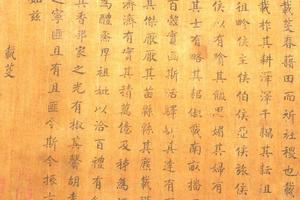 載芟春籍田而祈社稷也載
載柞其耕澤澤千耦其耘徂
徂畛侯主侯伯侯亞侯旅侯
侯以有嗿其饁思媚其婦有
其士有略其耜俶載南畝播
百穀實函斯活驛驛其達有
其傑厭厭其苗緜緜其麃載
濟濟有實其積萬億及秭為
為醴烝畀祖妣以洽百禮有
其香邦家之光有椒其馨胡考
之寧匪且有且匪今斯今振古
如茲
載芟